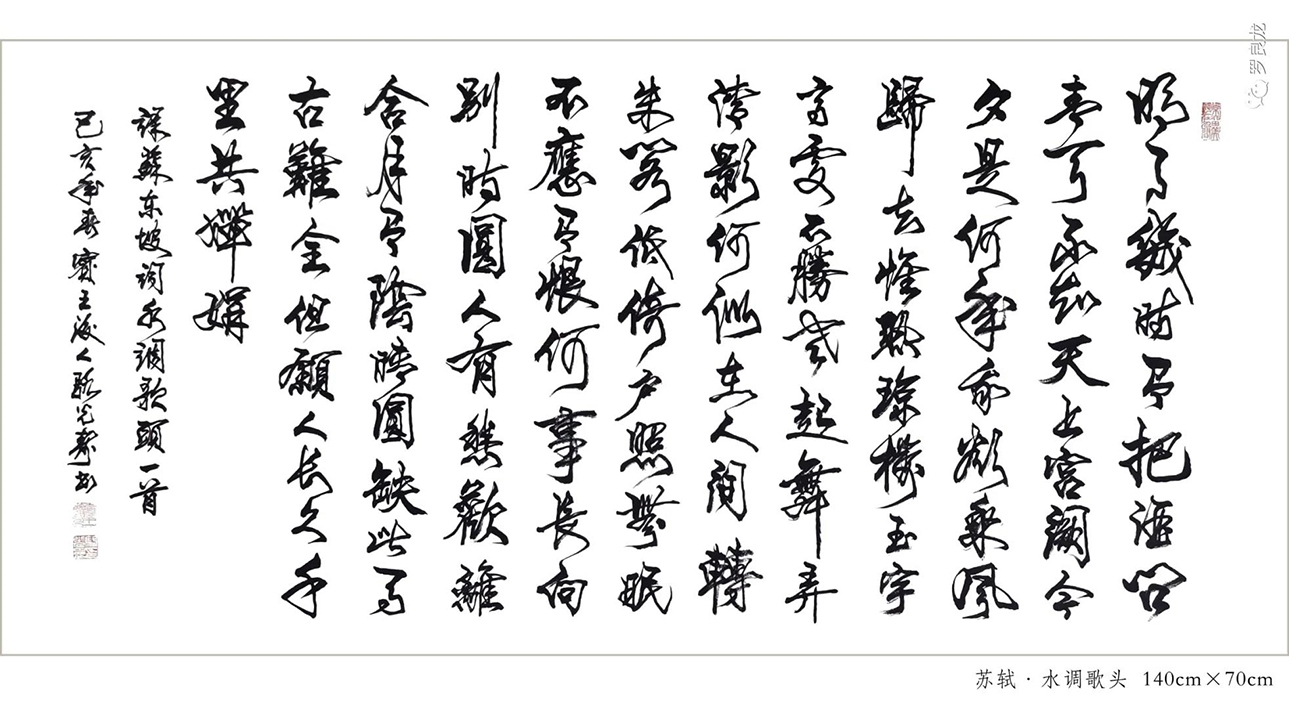 明月幾時有把酒問
青天不知天上宮闕今
夕是何年我欲乘風
歸去惟恐瓊樓玉宇
高處不勝寒起舞弄
清影何似在人間轉
朱閣低倚户照無眠
不應有恨何事長向
别時圓人有悲歡離
合月有陰晴圓缺此事
古難全但願人長久千
里共嬋娟
録蘇東坡詞水調歌頭一首
己亥年春賓王後人駱
罗良龙
苏轼·水调歌头 140cm×70cm